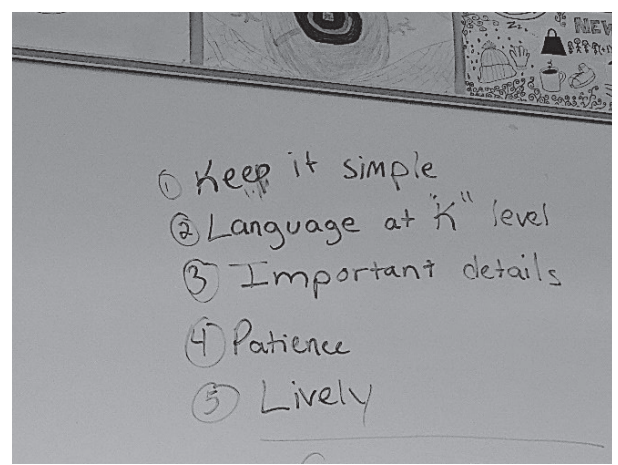 NEW
① Keep it simple
② Language at "K" level
③ Important details
④ Patience
⑤ Lively